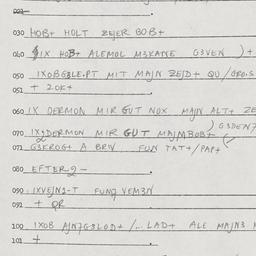 021
030 HOB+ HOLT ZEJER BOB+
040 IX HOB+ ALEMOL M3KANE G3VEN )+
050 IXOBG3LE.PT MIT MAJN ZEJD+ QU/GRO.S
051 + 20K+
060 IX DERMON MIR GUT NOX MAJN ALT+ ZE
) G3DENZ
070 IX3DERMON MIR GUT MAJMBOB+
071 G3KROG+ A BRIV FUN TAT+/PAP+ (
080 EFTER2-
090 IXVEJN1-T FUN9 VEM3N
091 + QR
100 IXOB AJN7G3LOD+ /... LAD+ ALE MAJN3
101 +